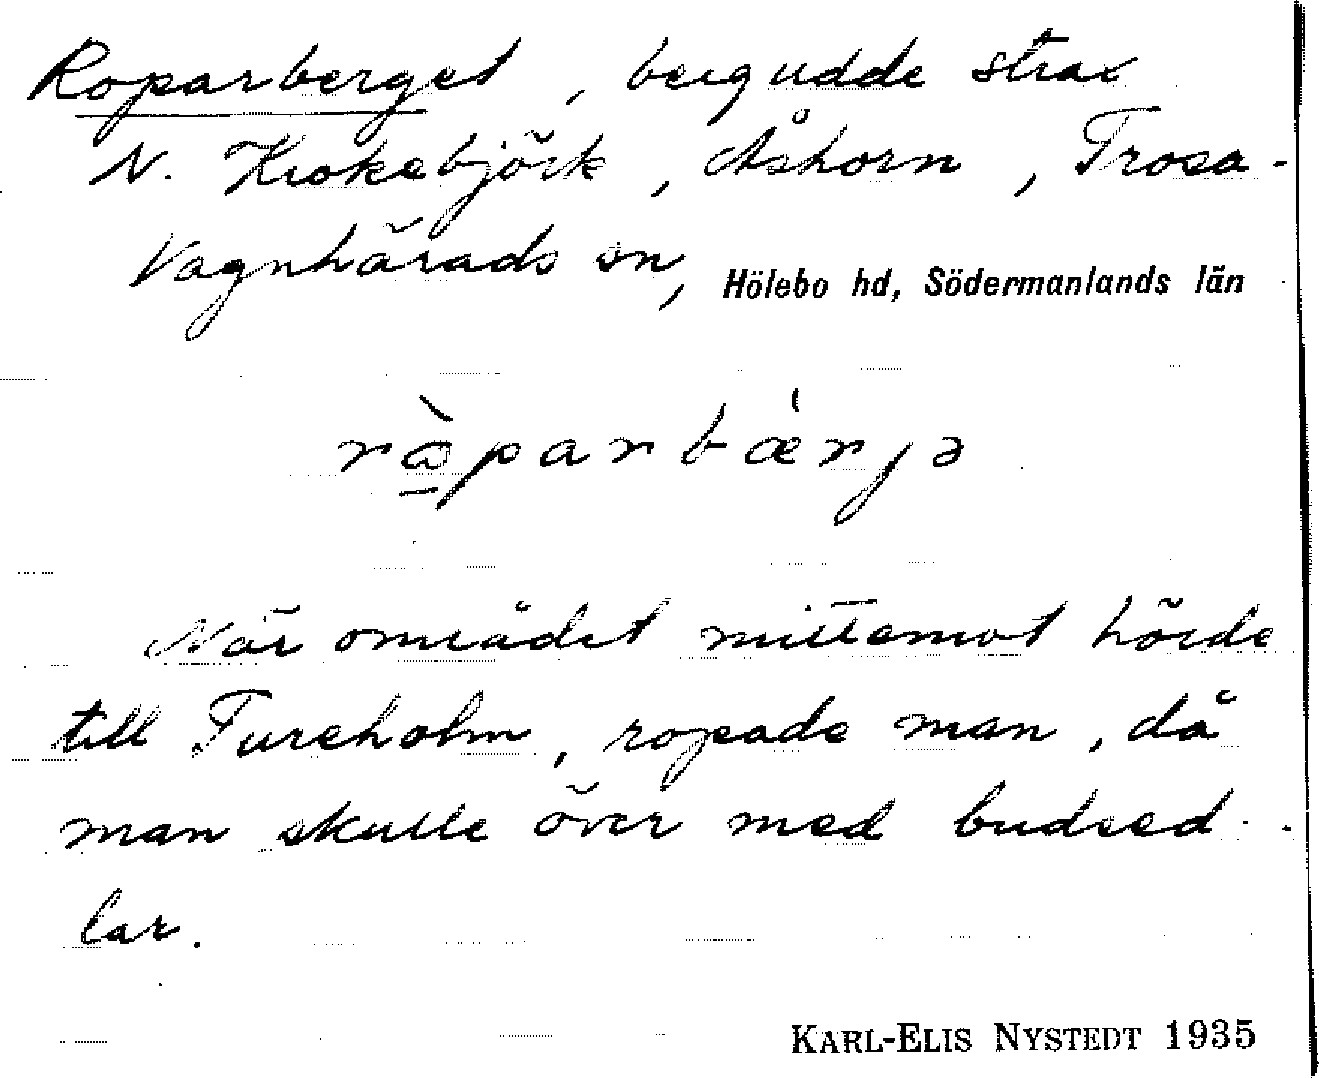 Roparberget, bergudde strax
N. Krokebjörk, Åshorn, Trosa-
Vagnhärads sn, Hölebo hd, Södermanlands län
ròparbǽrjə
När området mittemot hörde
till Tureholm, ropade man, då
man skulle över med budsed-
lar.
KARL-ELIS NYSTEDT 1935